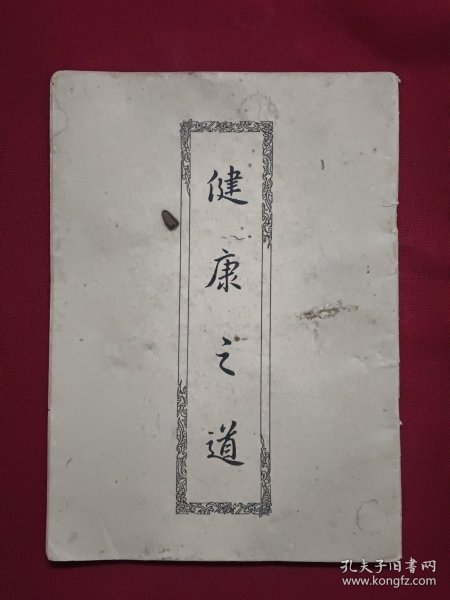 健康之道
孔夫子旧书网
www.kongfz.com